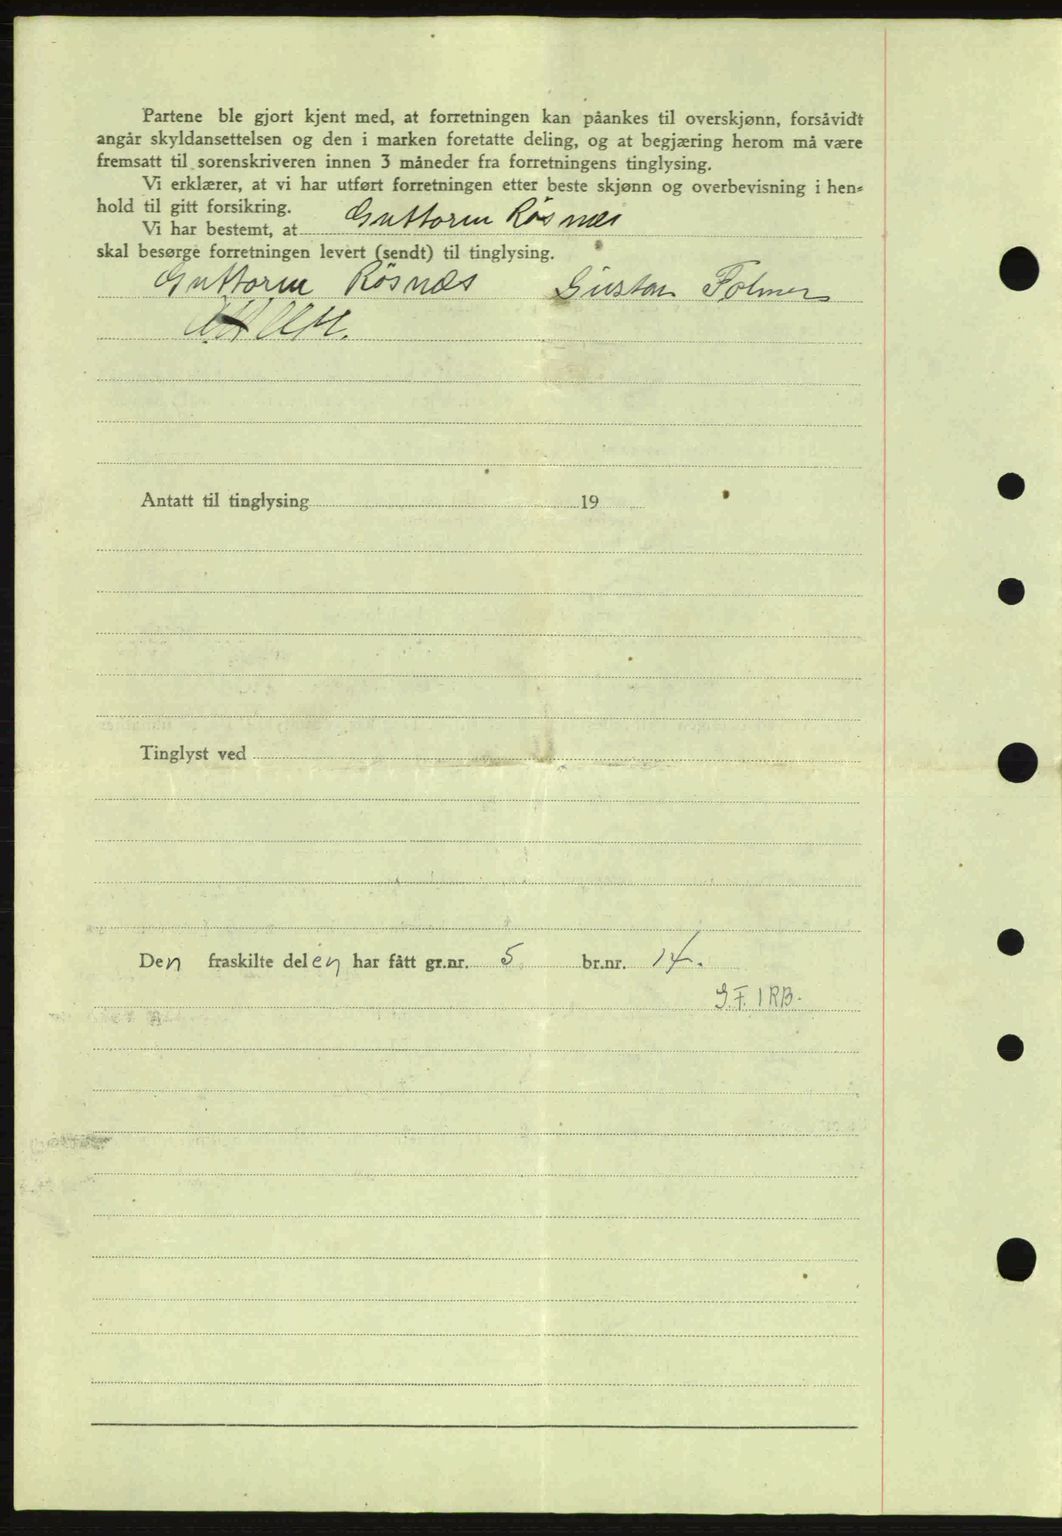 Partene ble gjort kjent med, at forretningen kan påankes til overskjønn, forsåvidt
angår skyldansettelsen og den i marken foretatte deling, og at begjæring herom må være
fremsatt til sorenskriveren innen 3 måneder fra forretningens tinglysing.
Vi erklærer, at vi har utført forretningen etter beste skjønn og overbevisning i hen-
hold til gitt forsikring.
Vi har bestemt, at Guttorm Røsnæs
skal besørge forretningen levert (sendt) til tinglysing.
Guttorm Røsnæs Gustav Folmer
Antatt til tinglysing 19
Tinglyst ved
Den fraskilte delen har fått gr.nr. 5 br.nr. 14.
S.F. 1RB.